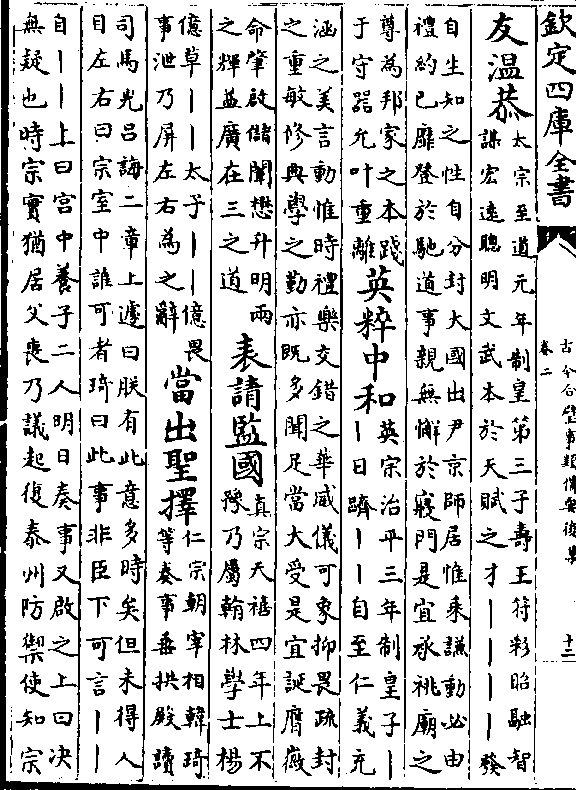 欽定四庫全書
古今合璧事類備要後集
卷二
十三
友温恭
太宗至道元年制皇第三子壽王符彩昭融智
謀宏逺聰明文武本於天賦之才丨丨丨丨發
自生知之性自分封大國出尹京師居惟乘謙動必由
禮約已靡登於馳道事親無懈於寢門是宜承祧廟之
尊為邦家之本踐
于守器允叶重離
英粹中和
英宗治平三年制皇子丨
丨日躋丨丨自至仁義充
涵之美言動惟時禮樂交錯之華威儀可象抑畏疏封
之重敏修典學之勤亦既多聞足當大受是宜誕膺薇
命肇啟儲闈懋升明兩
之輝益廣在三之道
表請監國
真宗天禧四年上不
豫乃屬翰林學士楊
億草丨丨太子丨丨億畏
事泄乃屏左右為之辭
當出聖擇
仁宗朝宰相韓琦
等奏事垂拱殿讀
司馬光吕誨二章上遽曰朕有此意多時矣但未得人
目左右曰宗室中誰可者琦曰此事非臣下可言丨丨
自丨丨上曰宫中養子二人明日奏事又啟之上曰决
無疑也時宗實猶居父喪乃議起復泰州防禦使知宗